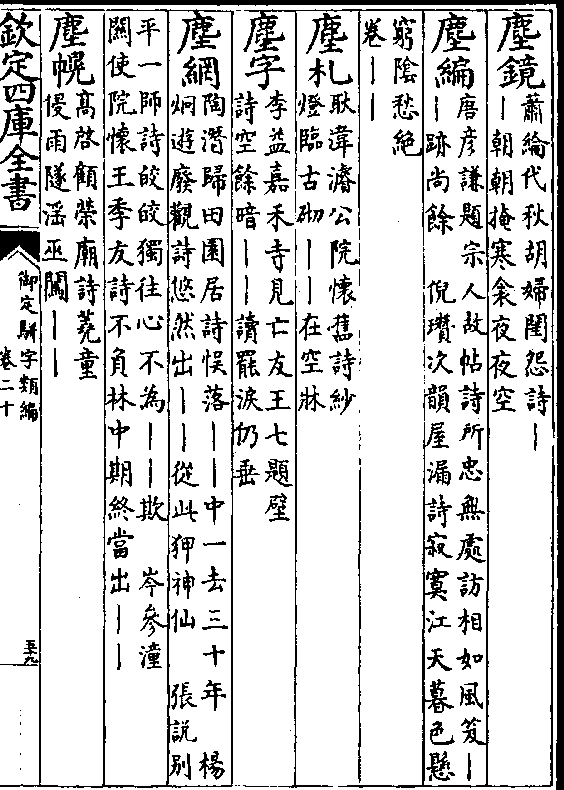 塵鏡 蕭綸代秋胡婦閨怨詩｜
｜朝朝掩寒衾夜夜空
塵編 唐彥謙題宗人故帖詩所忠無處訪相如風笈｜
｜跡尚餘 倪瓚次韻屋漏詩寂寞江天暮色懸
窮陰愁絶
卷｜｜
塵札 耿湋濬公院懷舊詩紗
燈臨古砌｜｜在空牀
塵字 李益嘉禾寺見亡友王七題壁
詩空餘暗｜｜讀罷淚仍垂
塵網 陶潛歸田園居詩悮落｜｜中一去三十年 楊
炯遊廢觀詩悠然出｜｜從此狎神仙 張説別
平一師詩皎皎獨往心不為｜｜欺 岑參潼
關使院懷王季友詩不負林中期終當出｜｜
塵幌 髙啓顧榮廟詩蕘童
侵雨隧滛巫闖｜｜
欽定四庫全書
御定駢字類編
卷二十
至九